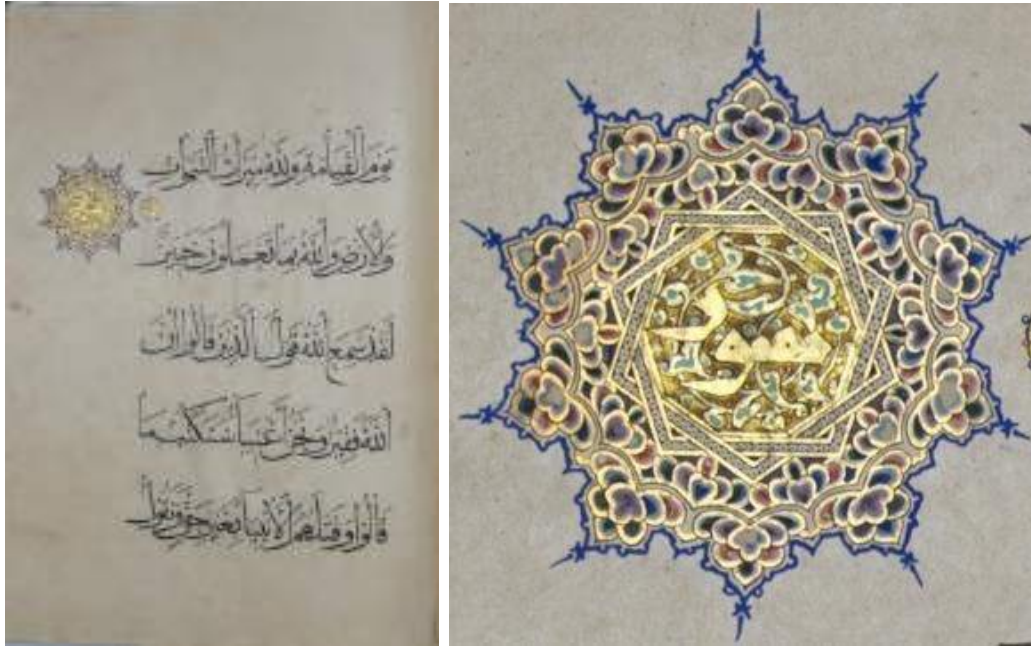 يوم القيامة ولله ميراث السموات
والأرض والله بما تعملون خبير
لقد سمع الله قول الذين قالوا إن
الله فقير ونحن أغنيا سنكتب ما
قالوا وقتلهم الأنبيا بغير حق ونقول